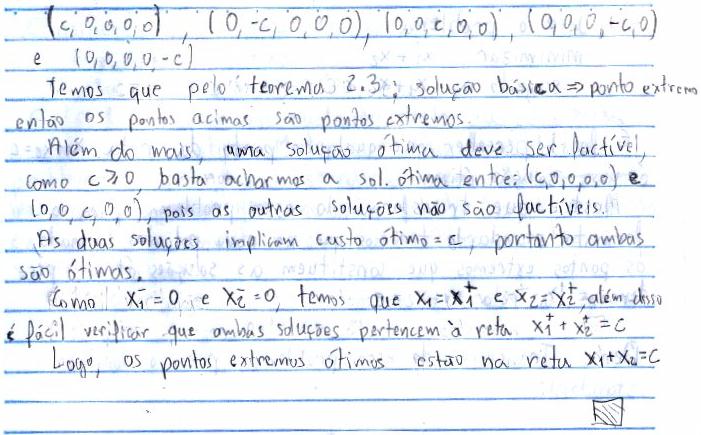 (c, 0, 0, 0, 0) , (0, -c, 0, 0, 0) , (0, 0, c, 0, 0) , (0, 0, 0, -c, 0)
e (0, 0, 0, 0, -c)
Temos que pelo teorema 2.3; solução básica ⇒ ponto extremo
então os pontos acimas são pontos extremos.
Além do mais, uma solução ótima deve ser factível,
como c ≥ 0, basta acharmos a sol. ótima entre: (c, 0, 0, 0, 0) e
(0, 0, c, 0, 0), pois as outras soluções não são factíveis.
As duas soluções implicam custo ótimo = c, portanto ambas
são ótimas.
Como x₁⁻ = 0 e x₂⁻ = 0, temos que x₁ = x₁⁺ e x₂ = x₂⁺, além disso
é fácil verificar que ambas soluções pertencem à reta x₁⁺ + x₂⁺ = c
Logo, os pontos extremos ótimos estão na reta x₁ + x₂ = c